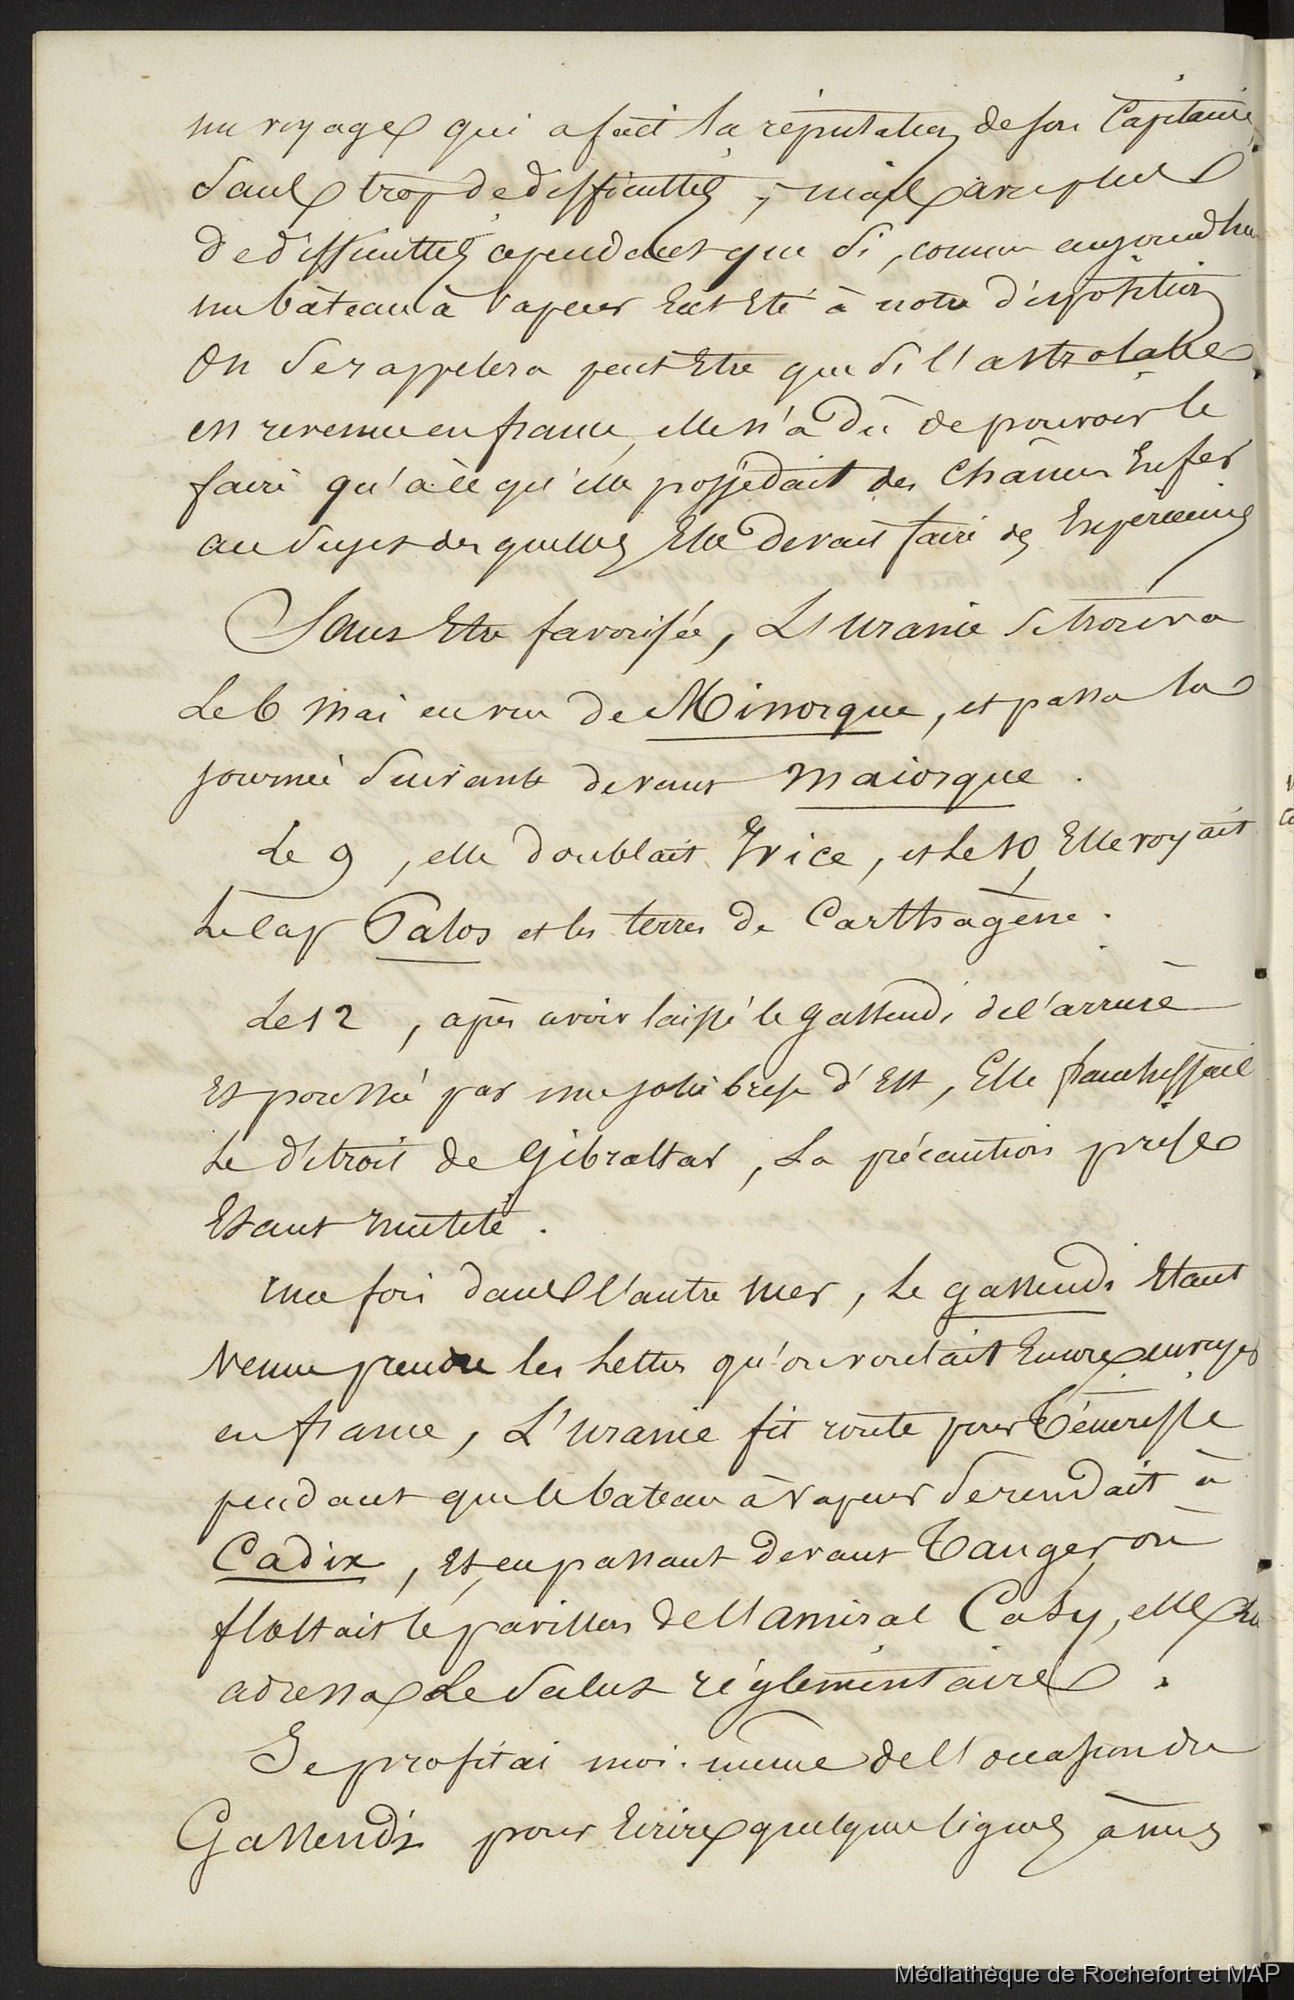 un voyage qui a fait la réputation de son Capitaine
sans trop de difficultés, mais avec plus
de difficultés cependant que si, comme aujourd'hui
un bâteau à vapeur eut été à notre disposition
On se rappelera peut être que si l'astrolabe
est revenue en france, elle n'a dû de pouvoir le
faire qu'à ce qu'elle possédait des Chaînes En fer
au sujet des quelles Elle devait faire des Expériences
Sans Etre favorisée, L'uranie se trouva
Le 6 Mai en vue de Minorque, et passa la
journée suivante devant Maiorque.
Le 9, elle doublait Ivice, et Le 10, Elle voyait
Le Cap Palos et les terres de Carthagène.
Le 12, après avoir laissé le Gassendi de l'arrière
Et poussée par une jolie brise d'Est, Elle franchissait
Le détroit de Gibraltar, La précaution prise
Etant inutile.
Une fois dans l'autre Mer, Le Gassendi Etant
Venu prendre les Lettres qu'on voulait Encore envoyer
en france, L'uranie fit route pour Ténériffe
pendant que le bateau à vapeur se rendait à
Cadix, Et, en passant devant Tanger, où
flottait le pavillon de l'amiral Casy, elle lui
adressa Le Salut réglementaire.
Je profitai moi-même de l'occasion du
Gassendi pour Ecrire quelques lignes à mes
Médiathèque de Rochefort et MAP